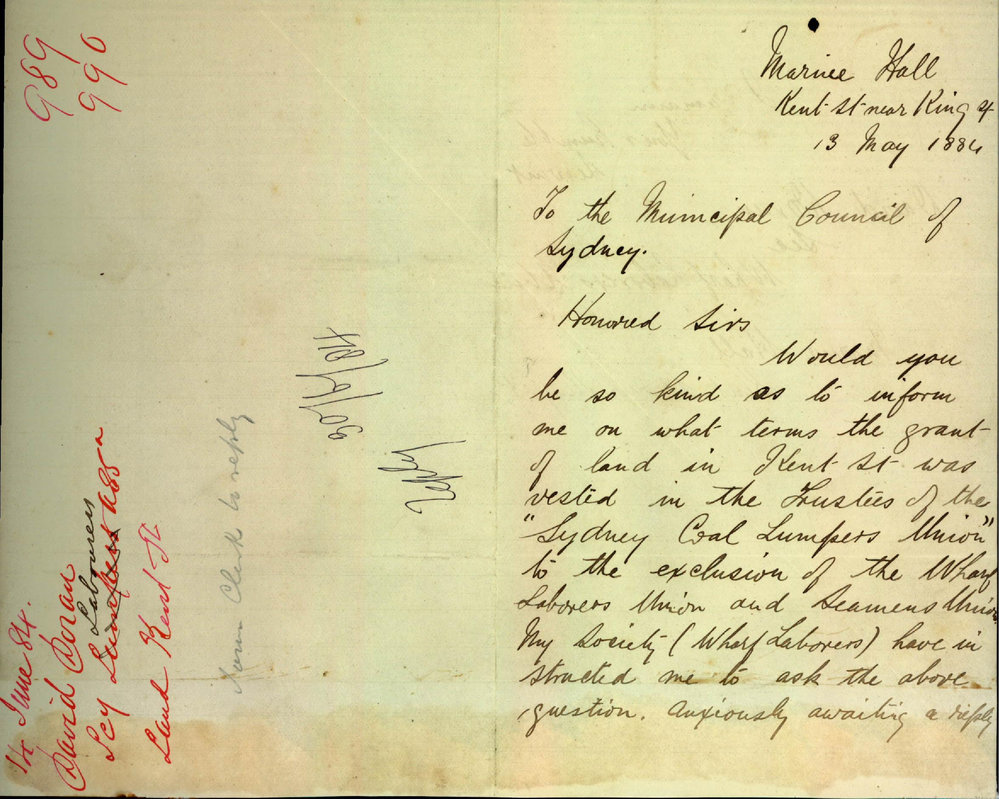 989
990
Marine Hall
Kent St near King St
13 May 1884
To the Municipal Council of
Sydney.
Honored Sirs
Would you
be so kind as to inform
me on what terms the grant
of land in Kent St was
vested in the Trustees of the
"Sydney Coal Lumpers Union"
to the exclusion of the Wharf
Laborers Union and Seamens Union
My Society (Wharf Laborers) have in
structed me to ask the above
question. Anxiously awaiting a reply
June 84.
David Doran
Scy Lumpers Laborers Assn
Land Kent St
Town Clerk to reply
30/6/84